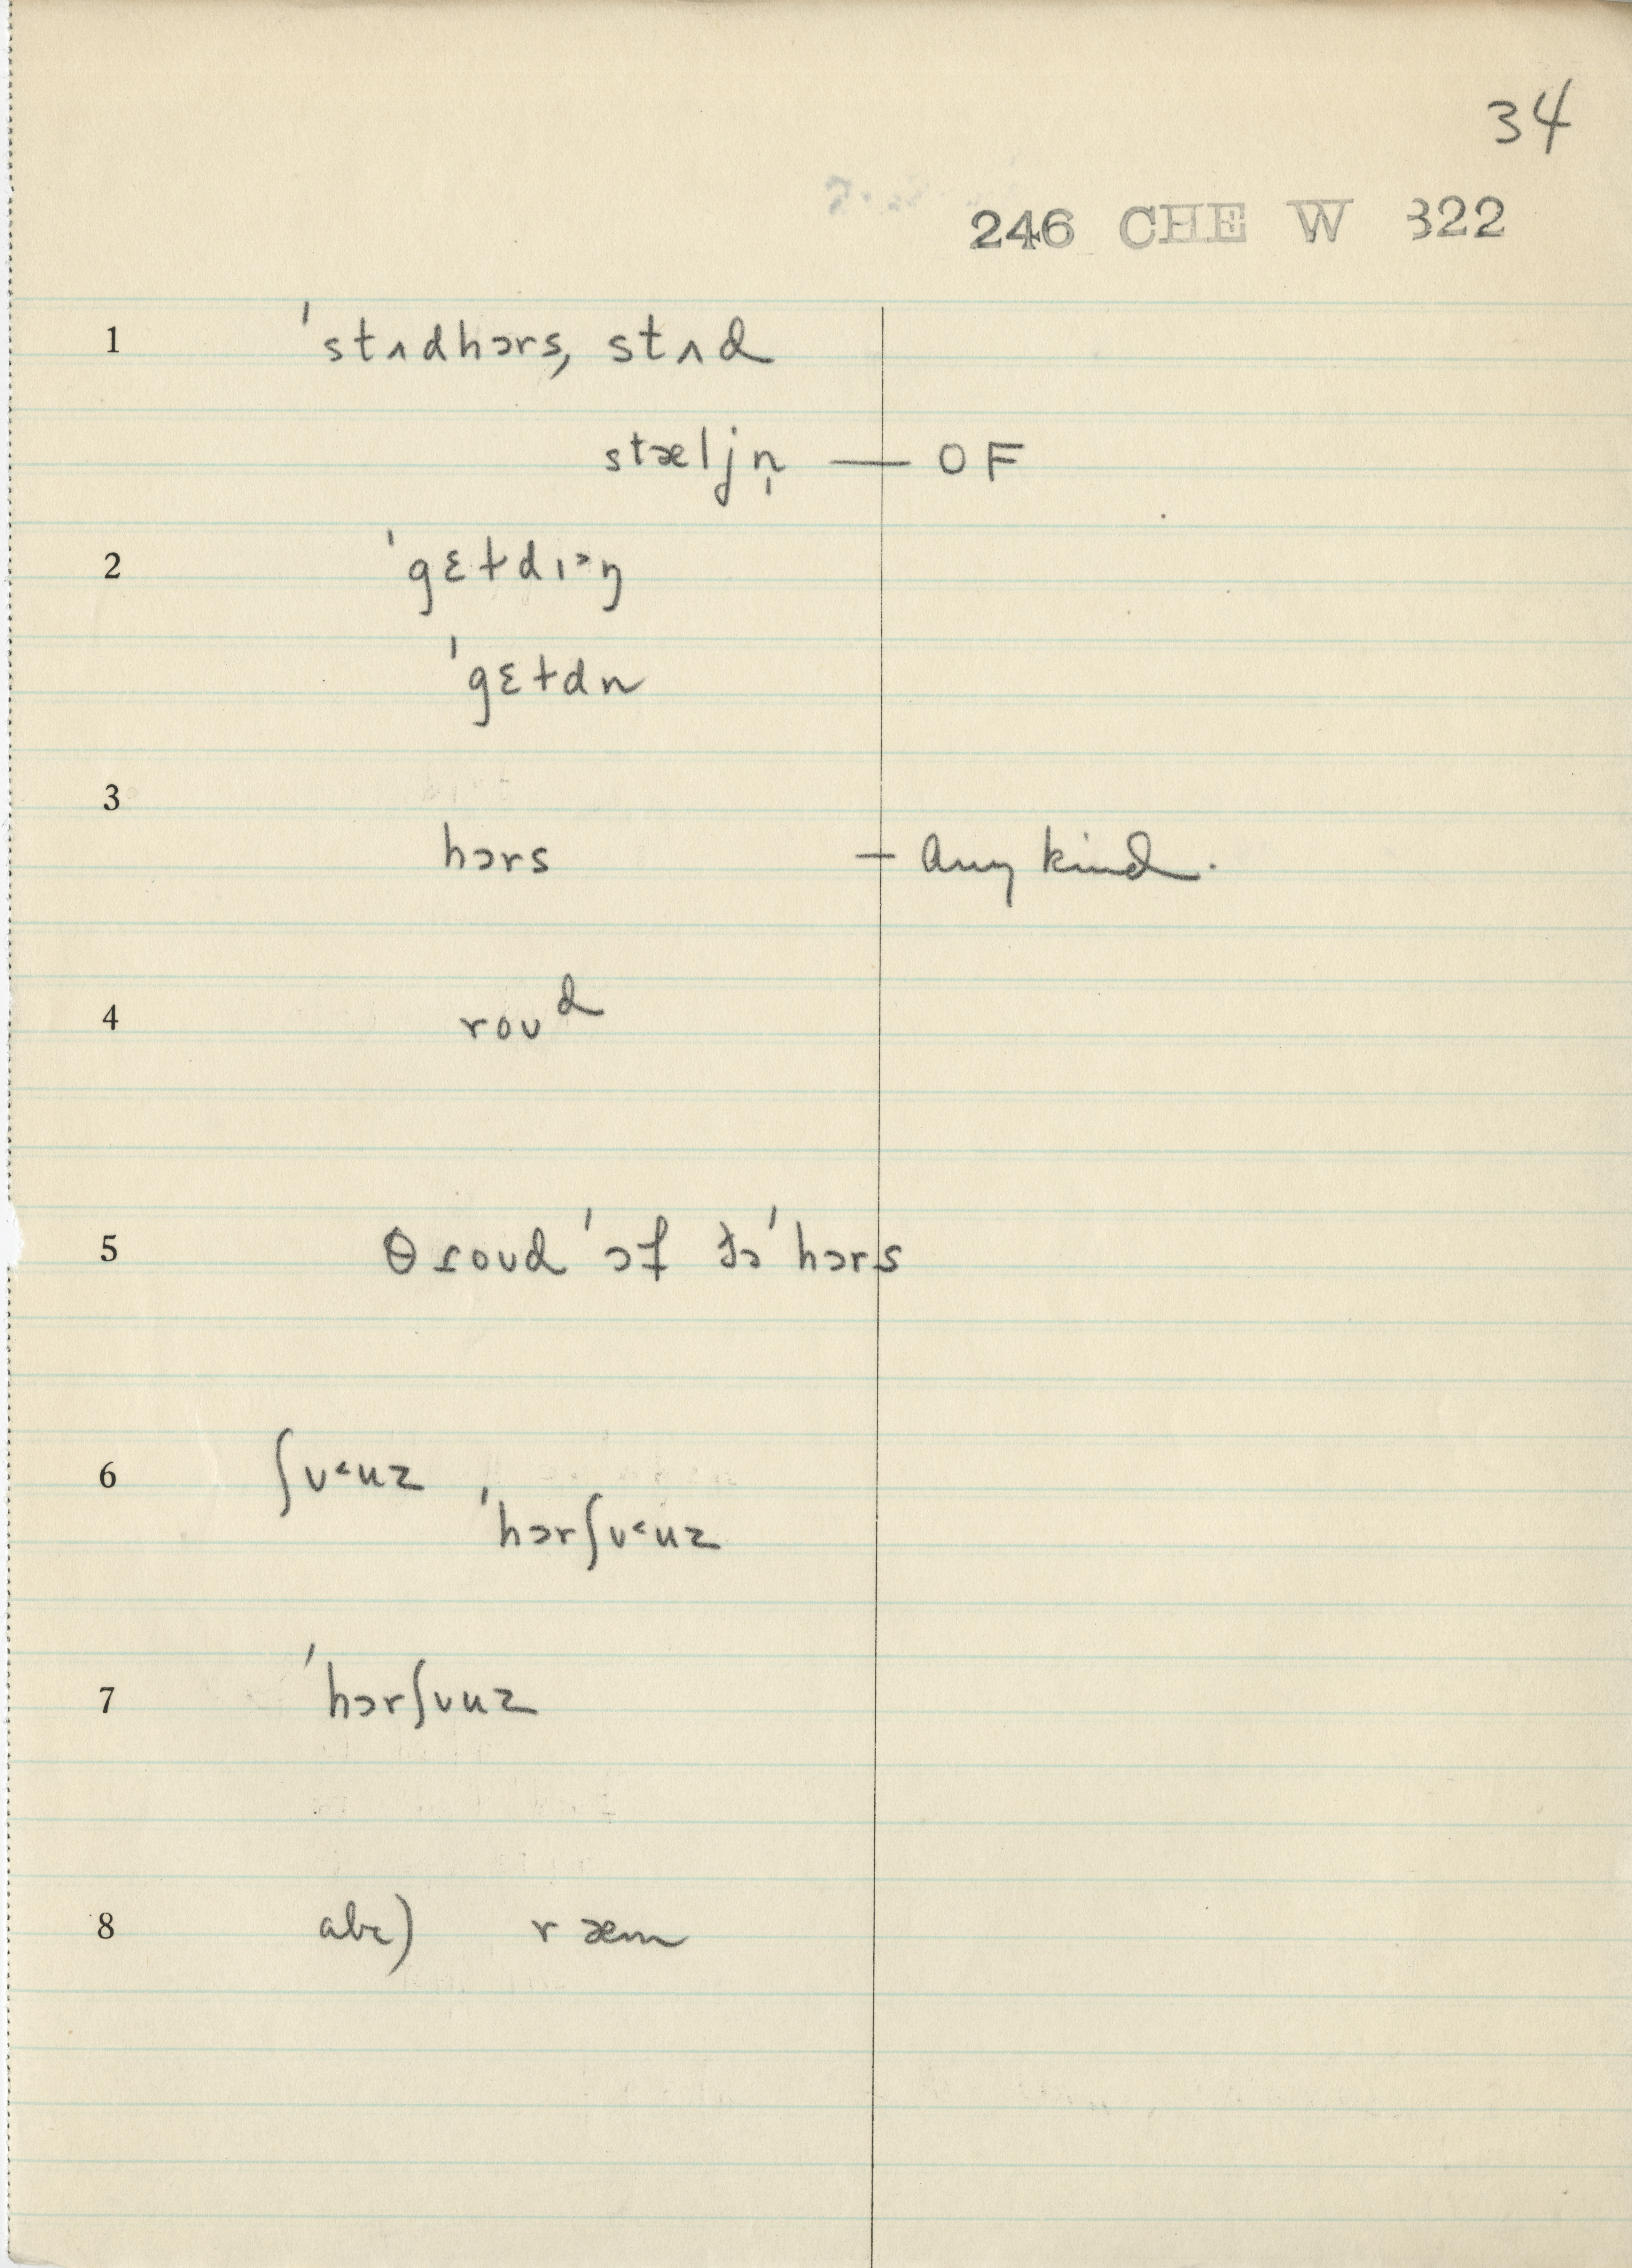 34
246 CHE W 322
1 ˈstʌdhɔrs, stʌd
stæljn̩ — OF
2 ˈgɛɫdɪ˃ŋ
ˈgɛɫdn
3
hɔrs — any kind.
4 roʊd
5 θɾoʊd ˈɔf ðə ˈhɔrs
6 ʃʊ˂uz
ˈhɔrʃʊ˂uz
7 ˈhɔrʃʊuz
8 abc) ræm